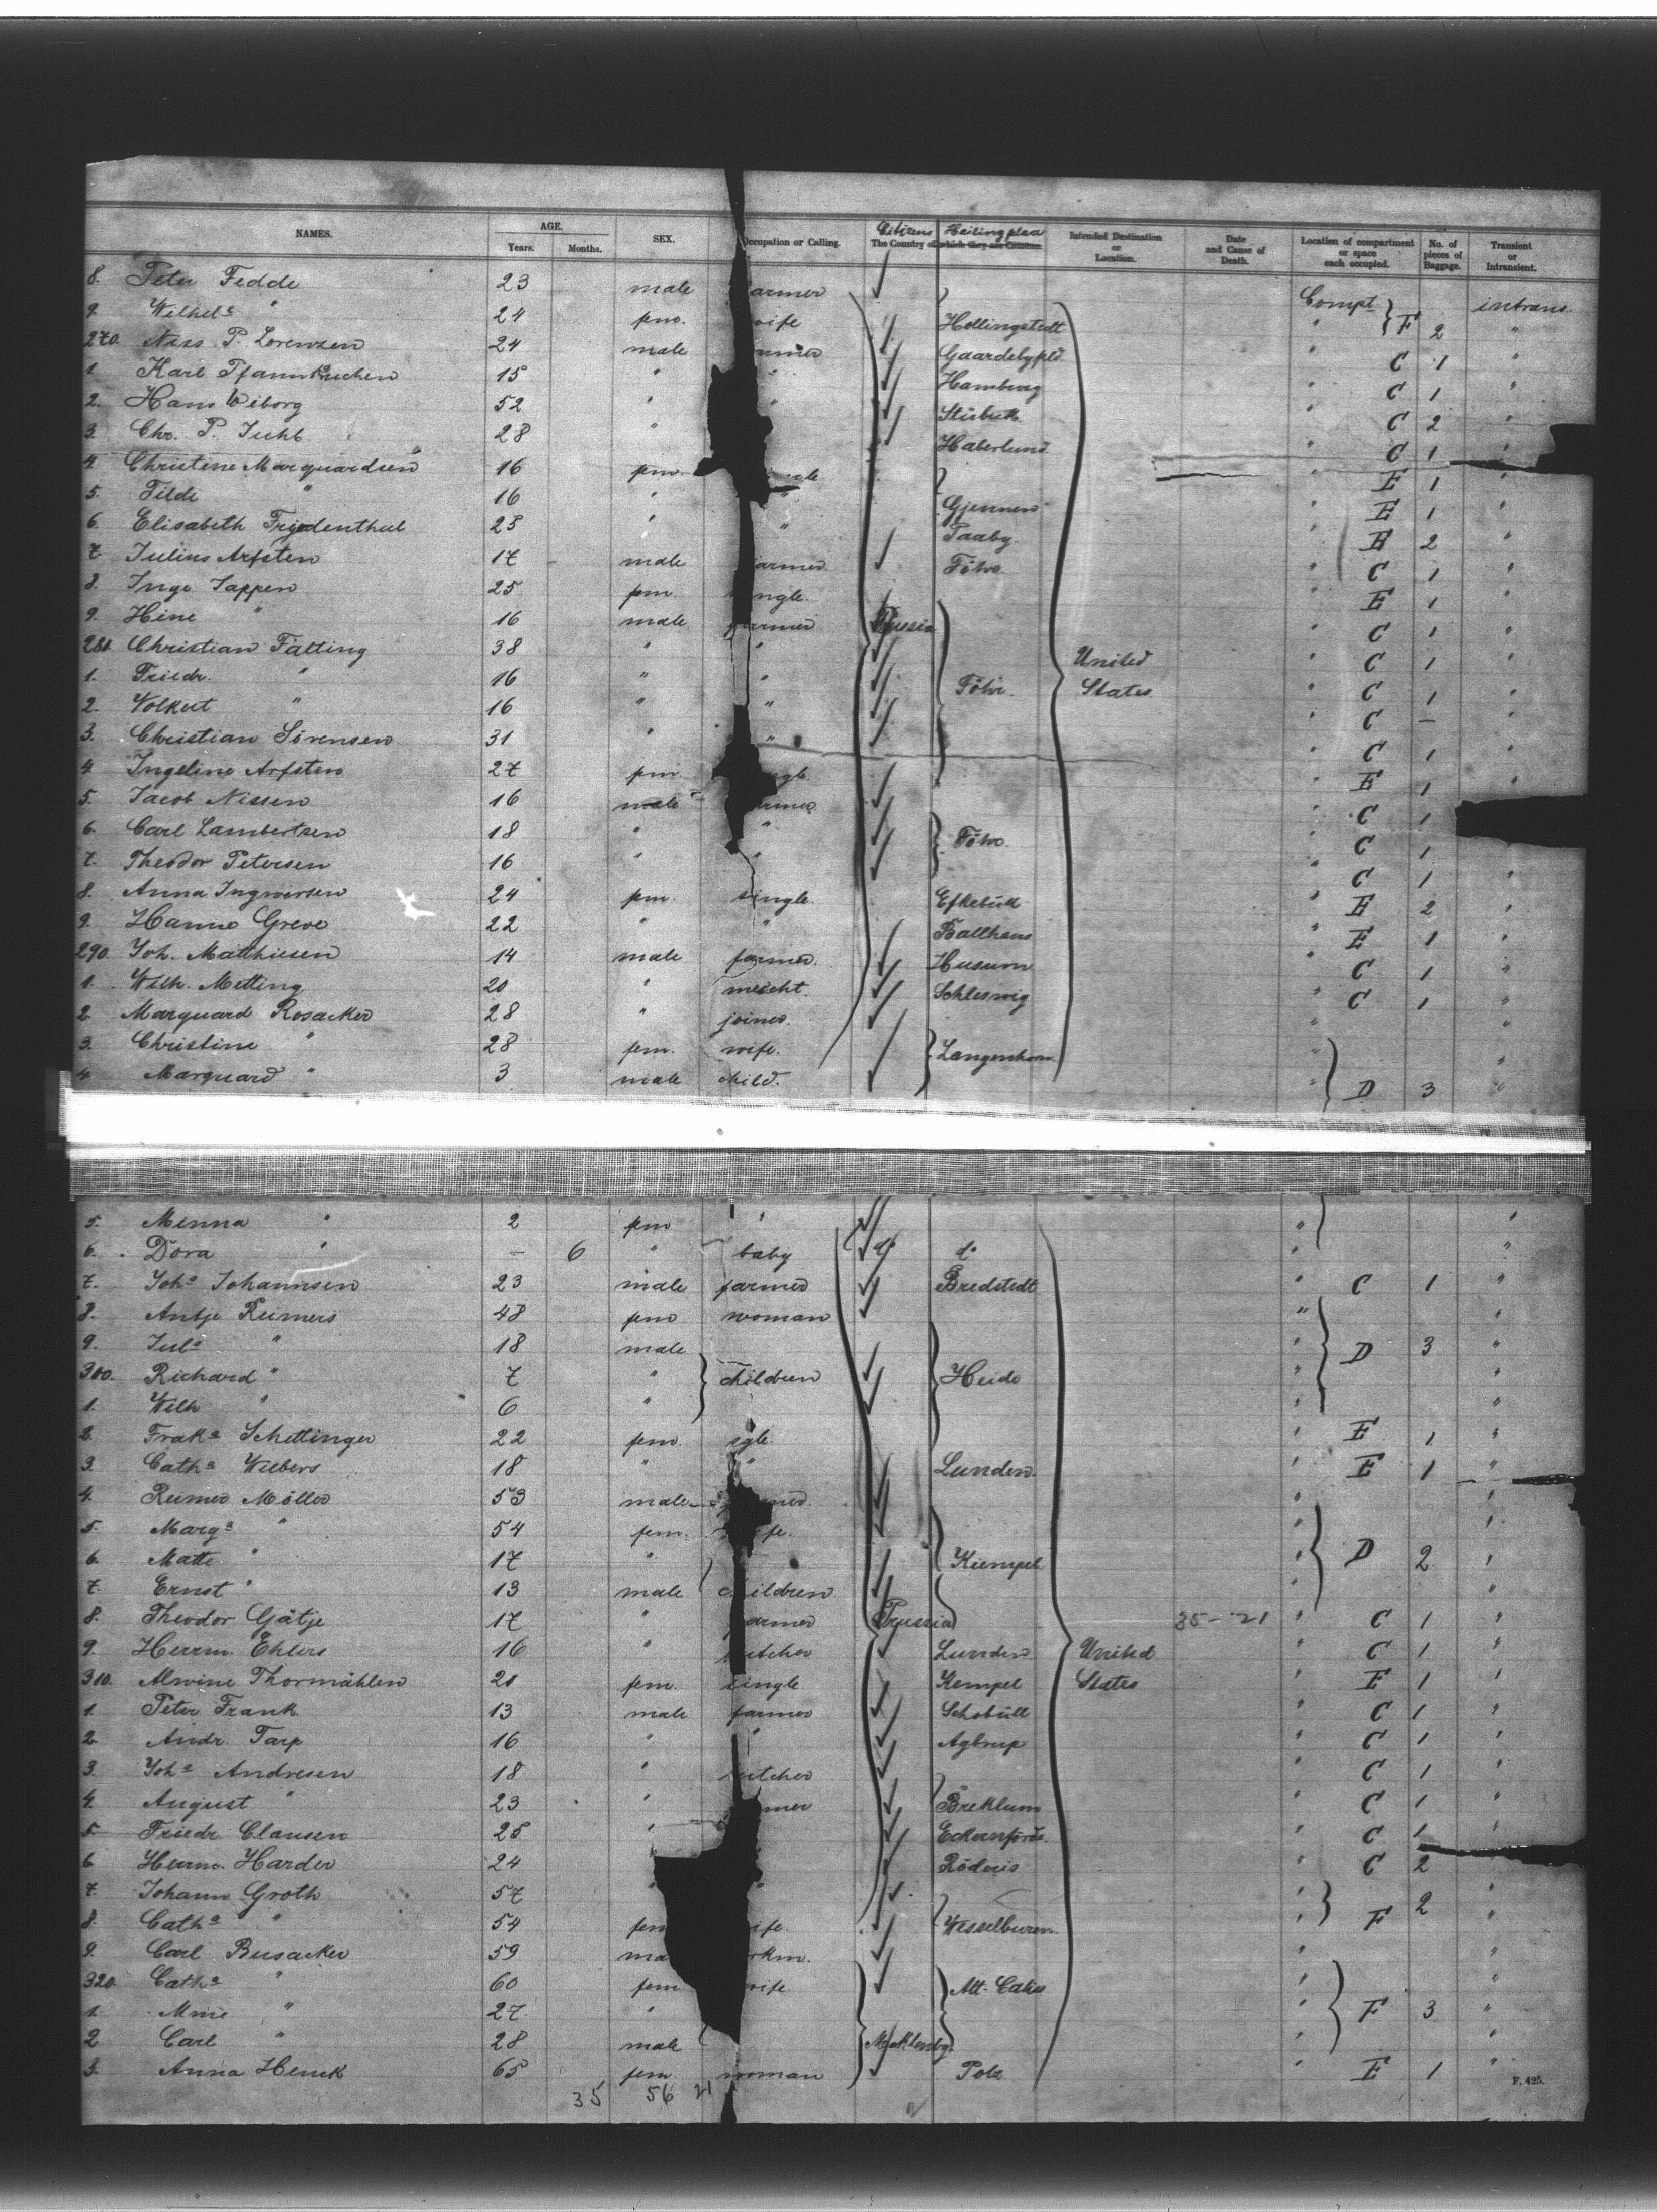 NAMES. AGE. Years. Months. SEX. Occupation or Calling. Citizens The Country of which they are Citizens. Intended Destination or Location. Date and Cause of Death. Location of compartment or space each occupied. No. of pieces of Baggage. Transient or Intransient.
8. Peter Fedde 23 male armer Compt intrans
9. Wilhel.e " 24 fem. ife Hollingstedt " F 2 "
270. Niss P. Lorenzen 24 male armer " C 1 "
1. Karl 15 " " Hamburg " C 1 "
2. Hans Wiborg 52 " " " C 2 "
3. Chr. P. Juhl 28 " Haberlund " C 1 "
4. Christine Marquardsen 16 fem. gle " E 1
5. Tilde " 16 " " Gjenner " E 1 "
6. Elisabeth 25 " " Taaby " E 2 "
7. Julius Arfsten 17 male armer Föhr " C 1 "
8. Inge Jappen 25 fem. ngle " E 1 "
9. Hine " 16 male farmer Prussia " C 1 "
281. Christian Fälting 38 " " United " C 1 "
1. Friedr. " 16 " " Föhr. States " C 1 "
2. Volkert " 16 " " " C — "
3. Christian Sörensen 31 " " " C 1 "
4. Ingeline Arfsten 27 fem gle " E 1 "
5. Jacob Nissen 16 male armer " C 1
6. Carl Lambertsen 18 " " Föhr. " C 1
7. Theodor Petersen 16 " " " C 1 "
8. Anna Ingwersen 24 fem. single. Efkebüll " E 2 "
9. Hanne Greve 22 " " Ballhaus " E 1 "
290. Joh. Matthiesen 14 male farmer. Husum " C 1 "
1. Wilh. Metting 20 " Schleswig " C 1 "
2. Marquard Rosacker 28 " joiner. "
3. Christine " 28 fem. wife. Langenhorn " "
4. Marquard " 3 male child. " D 3 "
5. Minna " 2 fem " " "
6. Dora " — 6 " baby do do " "
7. Joha Johannsen 23 male farmer Bredstedt " C 1 "
8. Antje Reimers 48 fem woman " "
9. Jul.s " 18 male " D 3 "
300. Richard " 7 " children Heide " "
1. Wilh " 6 " " "
2. Schettinger 22 fem. sgle. " E 1 "
3. Cath.a Wilbers 18 " " Lunden " E 1 "
4. Reimer Möller 53 male mer. " "
5. Marg.a " 54 fem. fe. " "
6. Matte " 17 " Kiempel " D 2 "
7. Ernst " 13 male children " "
8. Theodor Gätje 17 " armer Prussia 35-21 " C 1 "
9. Herrm. Ehlers 16 " utcher Lunden United " C 1 "
310. Alwine Thormählen 21 fem single Kempel States " E 1 "
1. Peter Frank 13 male farmer Schobüll " C 1 "
2. Andr. Tarp 16 " " Agtrup " C 1 "
3. Joh.s Andresen 18 " utcher " C 1 "
4. August " 23 " mer Breklum " C 1 "
5. Friedr. Clausen 25 " Eckernförde " C 1 "
6. Herm. Harder 24 " " C 2
7. Johann Groth 57 " " 2 "
8. Cath.a " 54 fem ife. Wesselburen " F "
9. Carl Busacker 59 ma rkm. " "
320. Cath.a " 60 fem wife " "
1. Mine " 27 " " F 3 "
2. Carl " 28 male Mecklenbg. " "
3. Anna Henck 65 fem woman Polz " E 1 "
35 56 21
F. 425.